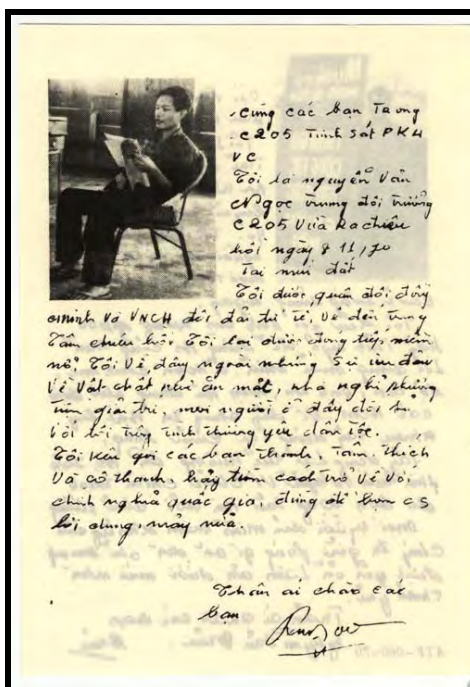 Cùng các bạn Trong
C205 Trinh sát PKH
VC
Tôi là nguyễn Văn
Ngọc trung đội trưởng
C205 vừa ra chiêu
hồi ngày 8 11/70
Tại núi đất
Tôi được quân đội đồng
minh và VNCH đối đãi tử tế, về đến trung
Tâm chiêu hồi Tôi lại được đón tiếp niềm
nở. Tôi về đây ngoài những sự ưu đãi
về vật chất như ăn mặc, nhà nghỉ phương
tiện giải trí, mọi người ở đây đối xử
với tôi tình thương yêu dân tộc.
Tôi kêu gọi các bạn Thành, Tâm, Thích
và cô thanh, hãy tìm cách trở về với
chính nghĩa quốc gia, đừng để bọn CS
lợi dụng mãy nữa.
Thân ái chào các
bạn